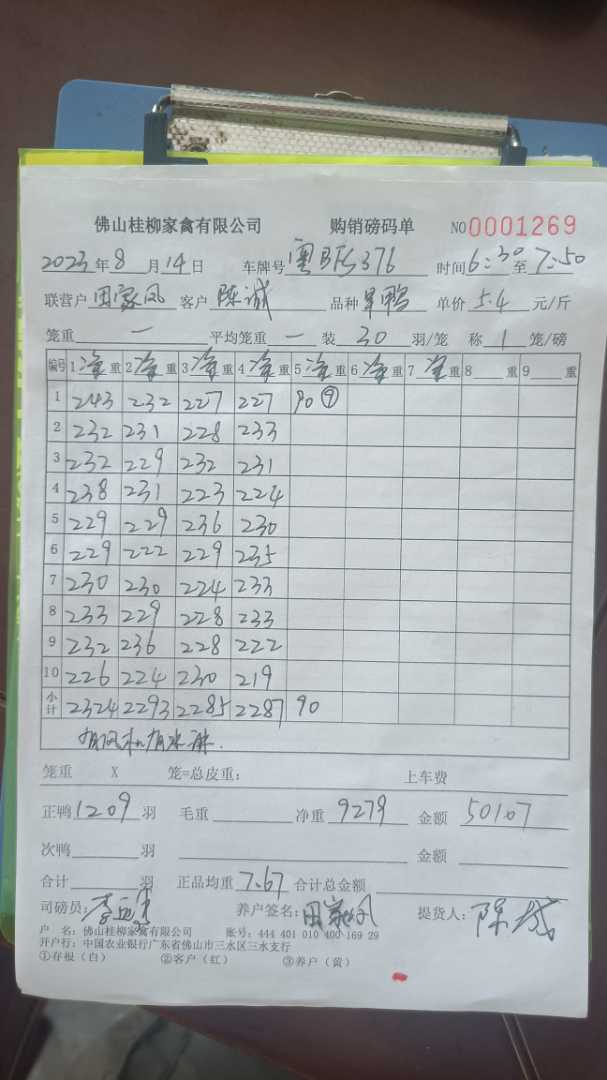 佛山桂柳家禽有限公司 购销磅码单 NO 0001269
2023年8月14日 车牌号 粤 376 时间6:30至7:50
联营户 田家风 客户 陈诚 品种 旱鸭 单价 5.4 元/斤
笼重 一 平均笼重 一 装 30 羽/笼 称 1 笼/磅
编号 1净重 2净重 3净重 4净重 5净重 6净重 7净重 8 重 9 重
1 243 232 227 227 90 ⑨
2 232 231 228 233
3 232 229 232 231
4 238 231 223 224
5 229 229 236 230
6 229 222 229 235
7 230 230 224 233
8 233 229 228 233
9 232 236 228 222
10 226 224 230 219
小计 2324 2293 2285 2287 90
有风机有水淋.
笼重 X 笼=总皮重: 上车费
正鸭 1209 羽 毛重 净重 9279 金额 50107
次鸭 羽 金额
合计 羽 正品均重 7.67 合计总金额
司磅员: 养户签名: 田家风 提货人: 陈诚
户 名: 佛山桂柳家禽有限公司 账号: 444 401 010 400 169 29
开户行: 中国农业银行广东省佛山市三水区三水支行
①存根(白) ②客户(红) ③养户(黄)